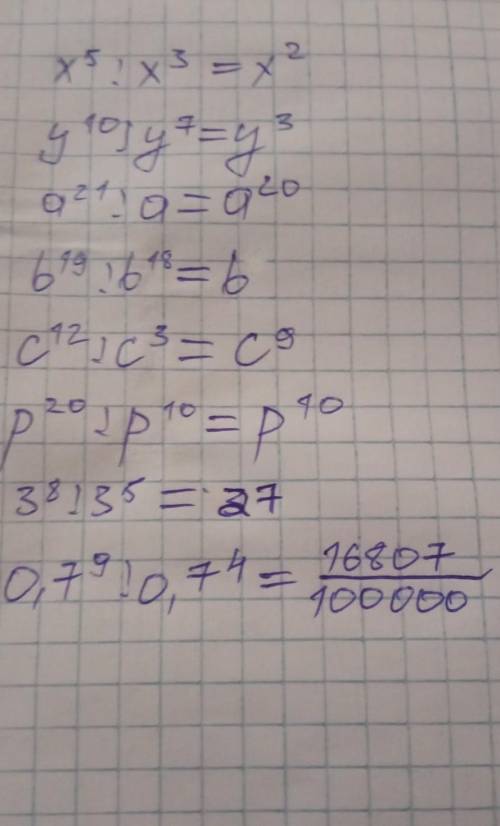 x⁵ : x³ = x²
y¹⁰ : y⁷ = y³
a²¹ : a = a²⁰
b¹⁹ : b¹⁸ = b
c¹² : c³ = c⁹
p²⁰ : p¹⁰ = p¹⁰
3⁸ : 3⁵ = 27
0,7⁹ : 0,7⁴ = 16807/100000